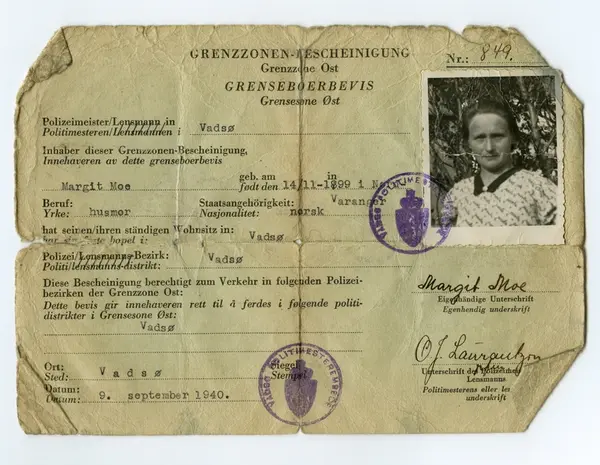 GRENZZONEN-BESCHEINIGUNG
Grenzzone Ost
GRENSEBOERBEVIS
Grensesone Øst
Nr.: 849.
Polizeimeister/Lensmann in
Politimesteren/Lensmannen i Vadsø
Inhaber dieser Grenzzonen-Bescheinigung,
Innehaveren av dette grenseboerbevis
Margit Moe
geb. am in
født den 14/11-1899 i
Varanger
Beruf:
Yrke: husmor
Staatsangehörigkeit:
Nasjonalitet: norsk
hat seinen/ihren ständigen Wohnsitz in:
bopel i: Vadsø
Polizei/Lensmanns-Bezirk:
Politi/lensmanns-distrikt: Vadsø
Diese Bescheinigung berechtigt zum Verkehr in folgenden Polizei-
bezirken der Grenzzone Ost:
Dette bevis gir innehaveren rett til å ferdes i følgende politi-
distrikter i Grensesone Øst:
Vadsø
Margit Moe
Eigenhändige Unterschrift
Egenhendig underskrift
Ort:
Sted: Vadsø
Siegel
Stempel
Datum:
Datum: 9. september 1940.
O. J. Lauritzen
Unterschrift des Polizeimeisters
Lensmanns
Politimesterens eller lens
underskrift
VADSØ POLITIMESTEREMBEDE